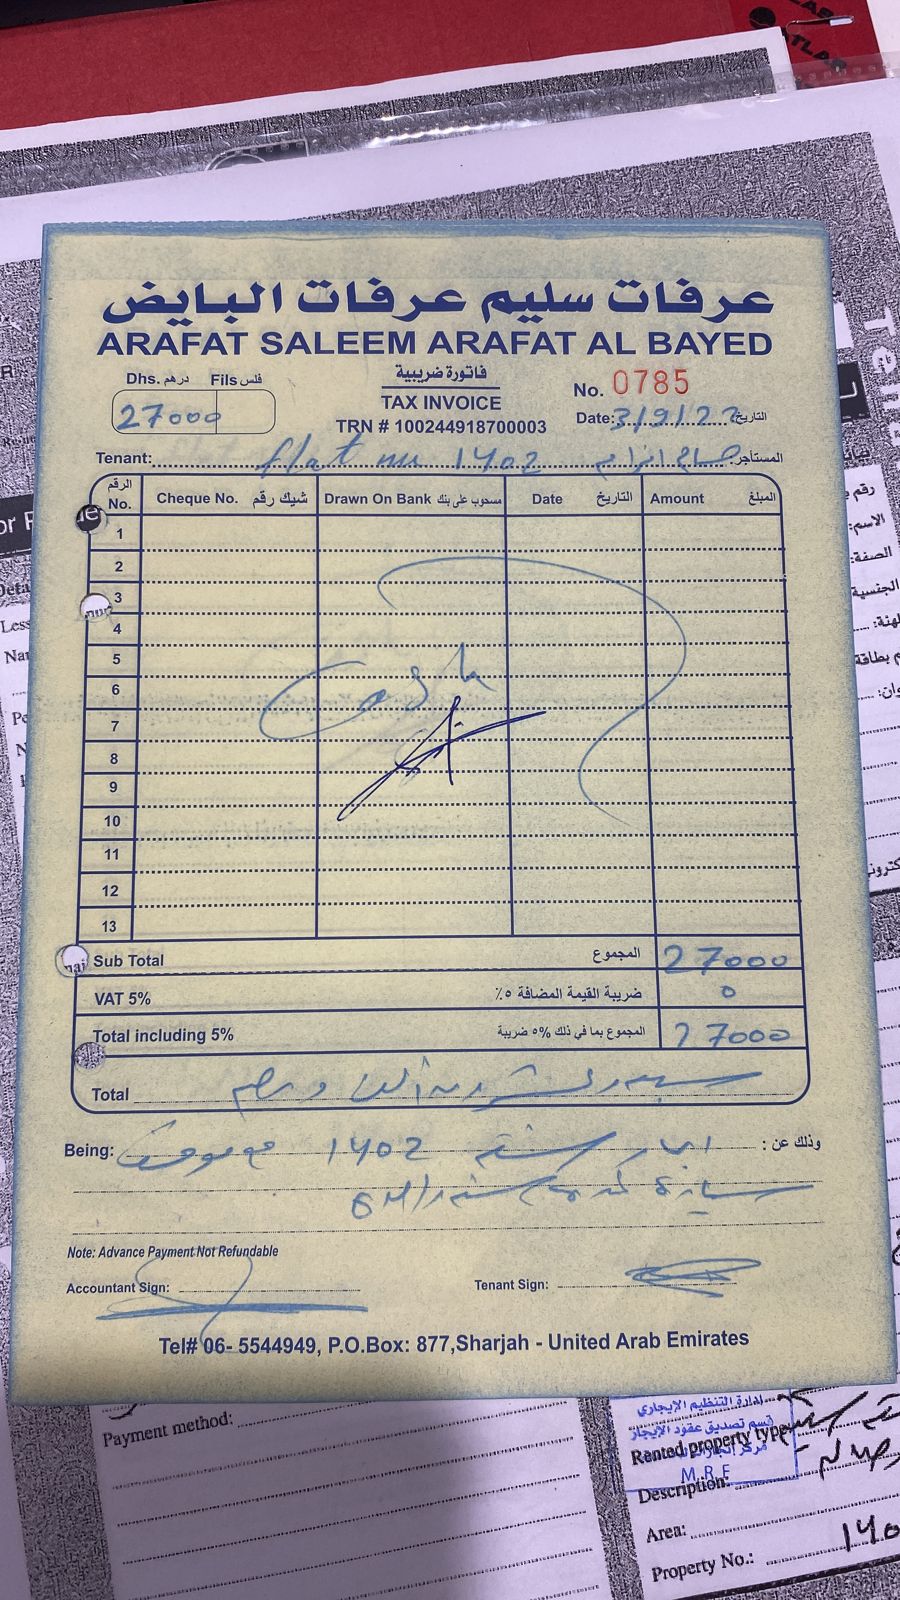 عرفات سليم عرفات البايض
ARAFAT SALEEM ARAFAT AL BAYED
Dhs. درهم Fils فلس
27000
فاتورة ضريبية
TAX INVOICE
TRN # 100244918700003
No. 0785
Date: 3/9/22 التاريخ
Tenant: flat nu 1402 المستأجر:
الرقم No. Cheque No. شيك رقم Drawn On Bank مسحوب على بنك Date التاريخ Amount المبلغ
1
2
3
4
5
6
7
8
9
10
11
12
13
Cash
Sub Total المجموع 27000
VAT 5% ضريبة القيمة المضافة ٥٪ 0
Total including 5% المجموع بما في ذلك ٥% ضريبة 27000
Total
Being: وذلك عن : ايجار شقة 1402 مع موقف
سيارة
Note: Advance Payment Not Refundable
Accountant Sign: Tenant Sign:
Tel# 06- 5544949, P.O.Box: 877,Sharjah - United Arab Emirates
Payment method:
إدارة التنظيم الإيجاري
قسم تصديق عقود الإيجار
M.R.F
Rented property type:
Description:
Area:
Property No.: 140